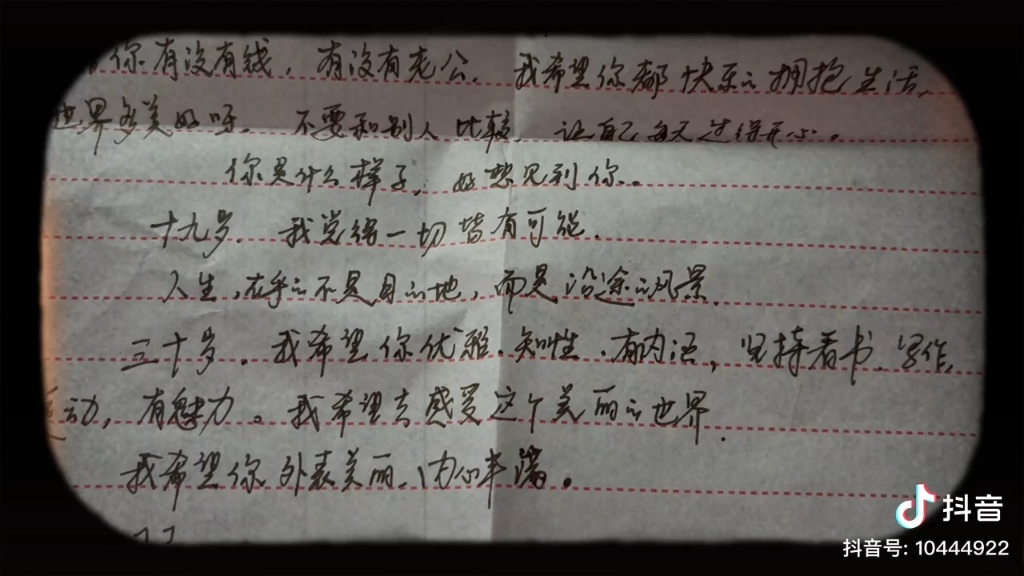 你有没有钱，有没有老公，我希望你都快乐的拥抱生活，
世界多美好呀。不要和别人比较，让自己每天过得开心。
你是什么样子，好想见到你。
十九岁，我觉得一切皆有可能。
人生，在乎的不是目的地，而是沿途的风景。
三十岁。我希望你优雅、知性、有内涵，坚持看书、写作、
运动，有魅力。我希望去感受这个美丽的世界。
我希望你外表美丽、内心丰满。
抖音
抖音号: 10444922